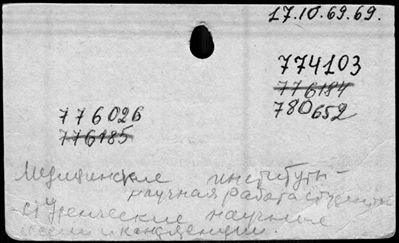 17.10.69.69.
774103
776184
780652
776026
776185
Медицинские институты -
научная работа студентов
студенческие научные
и конференции.